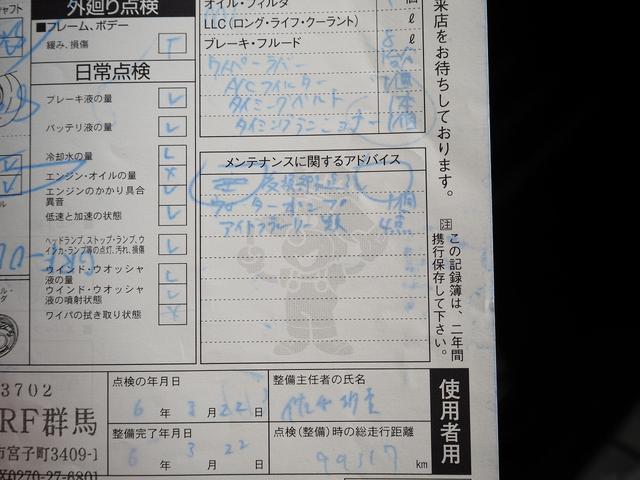 外廻り点検
■フレーム、ボデー
緩み、損傷
T
日常点検
ブレーキ液の量
レ
バッテリ液の量
レ
冷却水の量
L
エンジン・オイルの量
X
エンジンのかかり具合
異音
レ
低速と加速の状態
レ
ヘッドランプ、ストップ・ランプ、ウ
インカ・ランプ等の点灯、汚れ、損傷
レ
ウインド・ウオッシャ
液の量
レ
ウインド・ウオッシャ
液の噴射状態
レ
ワイパの拭き取り状態
X
オイル・フィルタ
個
LLC(ロング・ライフ・クーラント)
ℓ
ブレーキ・フルード
ℓ
ワイパーラバー
A/Cフィルター
1個
タイミングベルト
1本
1個
メンテナンスに関するアドバイス
ウォーターポンプ
1個
4点
来店をお待ちしております。
注
この記録簿は、二年間
携行保存して下さい。
3702
RF群馬
市宮子町3409-1
X0270-27-6801
点検の年月日
6 年 3 月 22 日
整備主任者の氏名
整備完了年月日
6 年 3 月 22 日
点検(整備)時の総走行距離
99317 km
使用者用